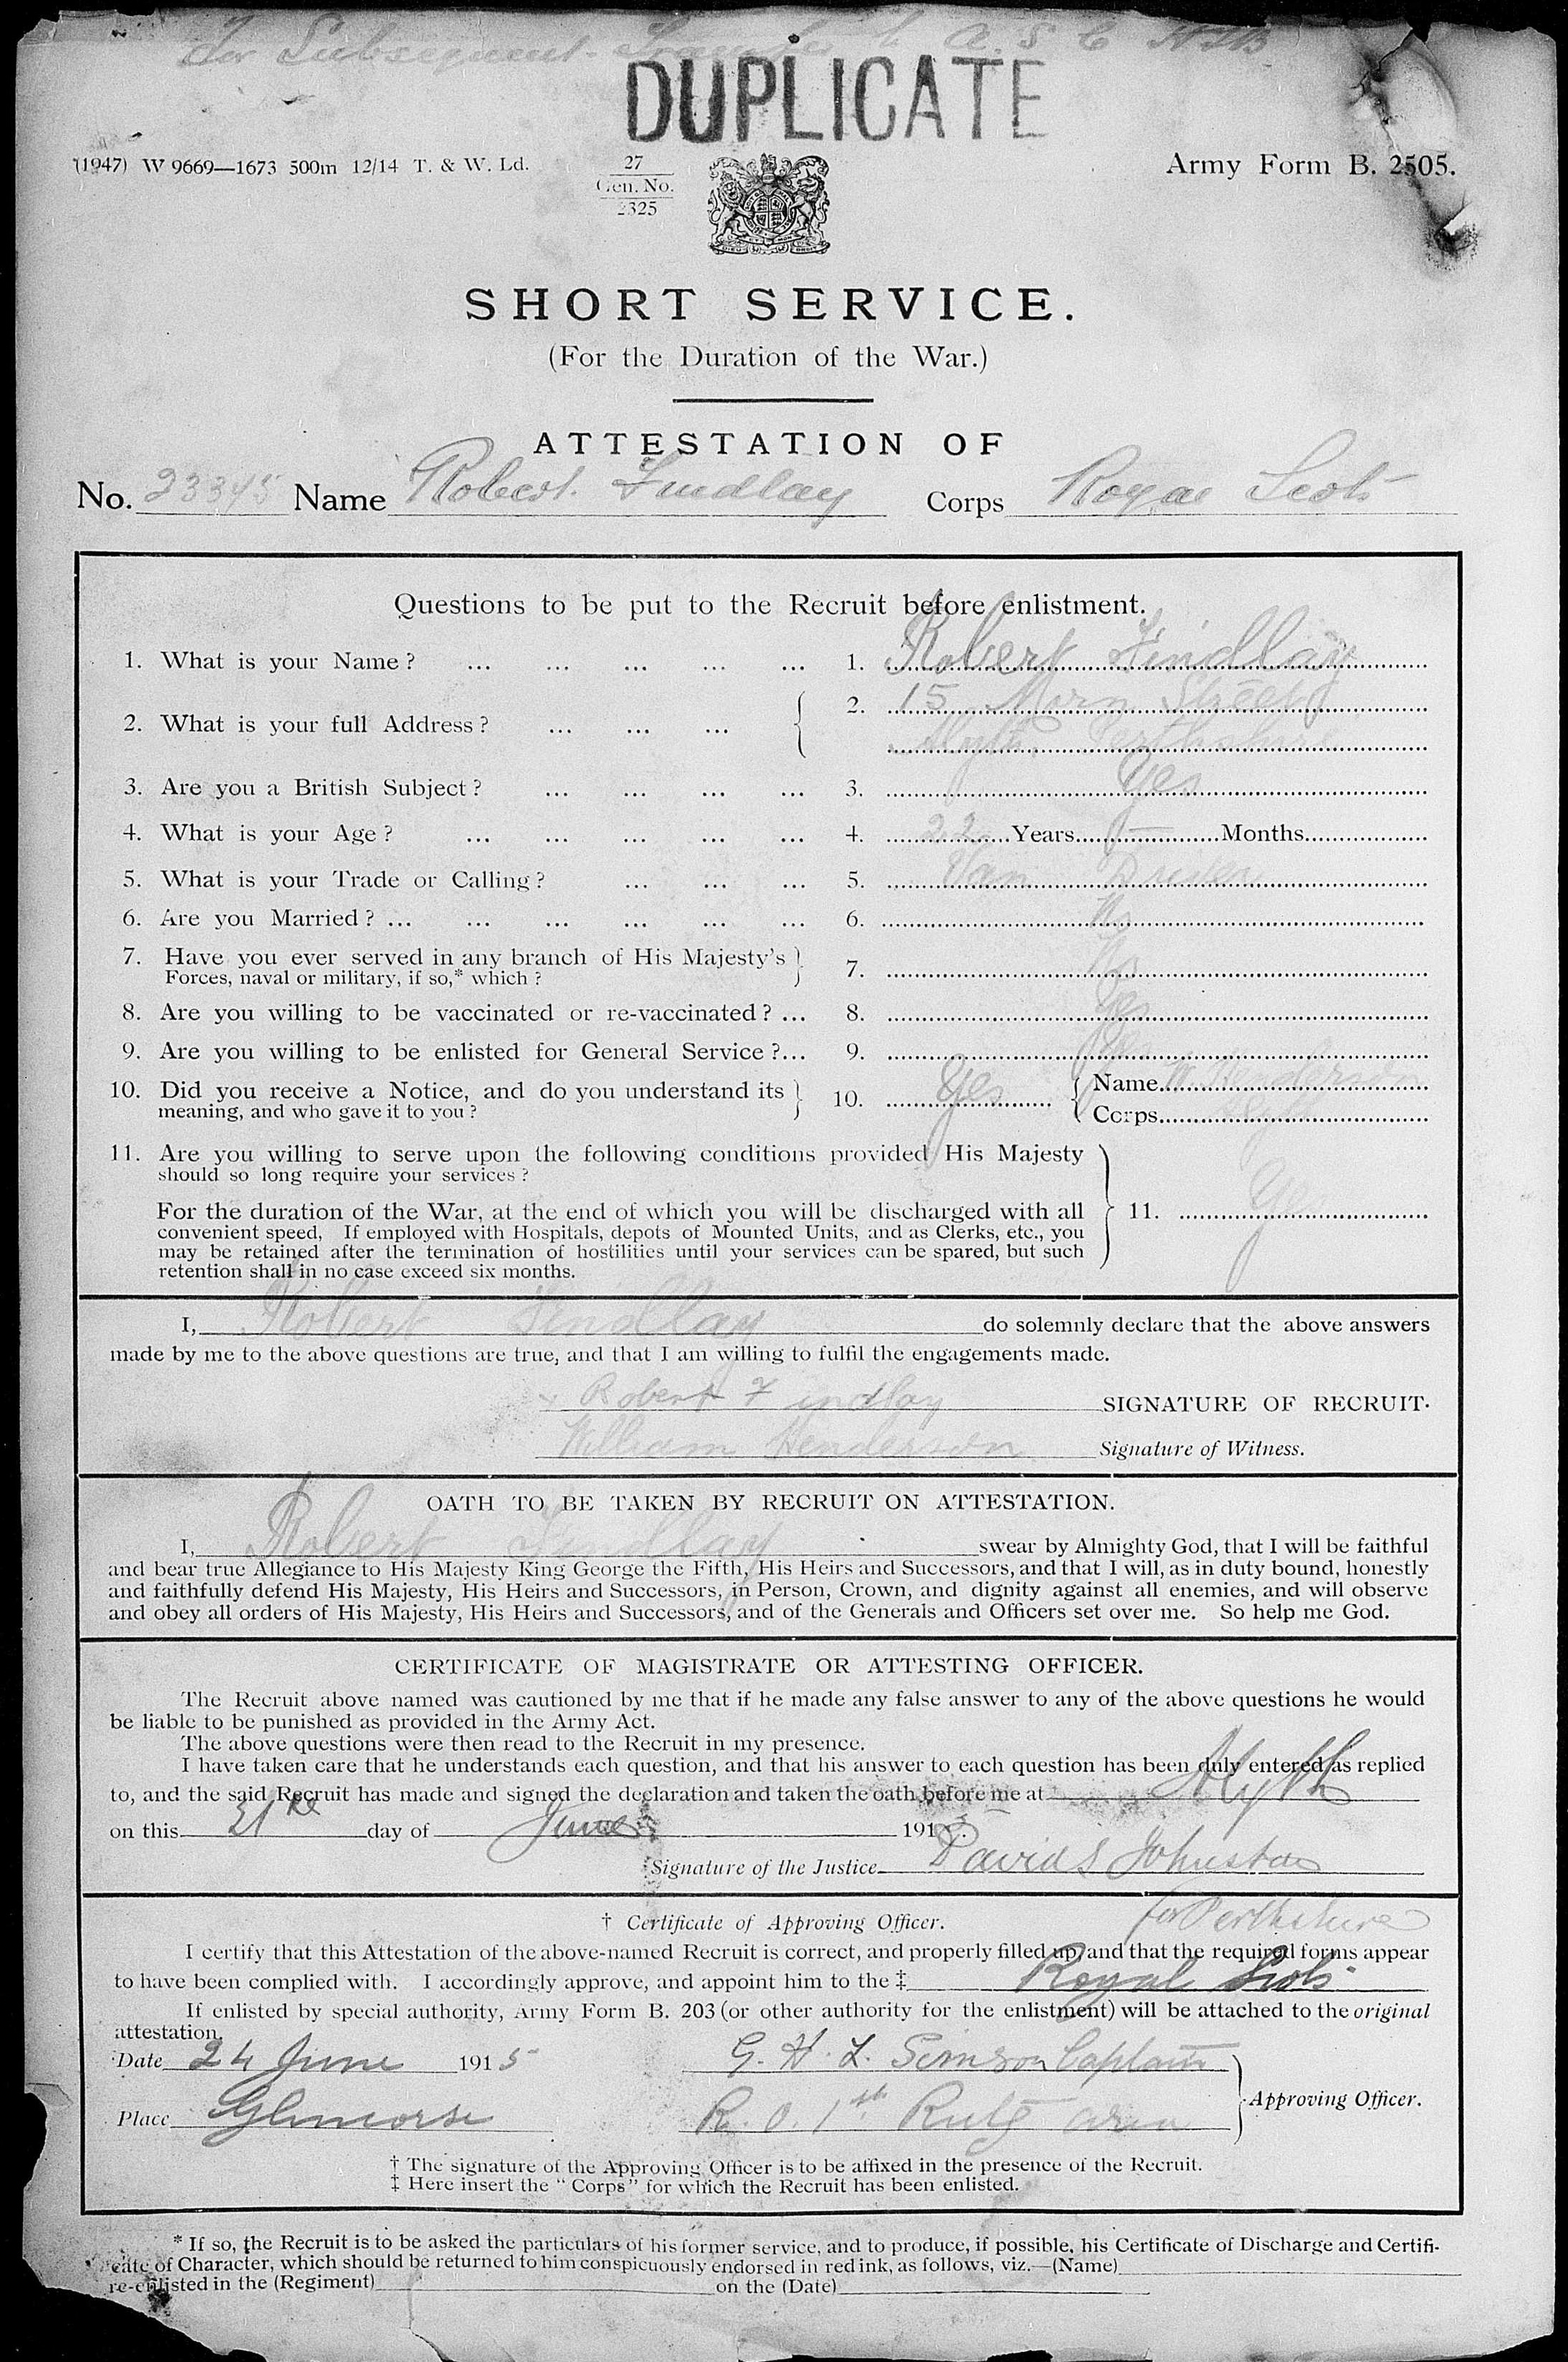 For Subsequent Transfer to A.S.C.
DUPLICATE
(1947) W 9669—1673 500m 12/14 T. & W. Ld.
27
Gen. No.
2325
Army Form B. 2505.
SHORT SERVICE.
(For the Duration of the War.)
ATTESTATION OF
No. 23345 Name Robert Findlay Corps Royal Scots
Questions to be put to the Recruit before enlistment.
1. What is your Name? ... ... ... ... ... 1. Robert Findlay
2. What is your full Address? ... ... ... 2. 15 Morn Street
Alyth Perthshire
3. Are you a British Subject? ... ... ... ... 3. Yes
4. What is your Age? ... ... ... ... ... 4. 22 Years — Months
5. What is your Trade or Calling? ... ... ... 5. Van Driver
6. Are you Married? ... ... ... ... ... ... 6. No
7. Have you ever served in any branch of His Majesty's 7. No
Forces, naval or military, if so,* which?
8. Are you willing to be vaccinated or re-vaccinated? ... 8. Yes
9. Are you willing to be enlisted for General Service?... 9. Yes
10. Did you receive a Notice, and do you understand its 10. Yes Name W. Henderson
meaning, and who gave it to you? Corps Alyth
11. Are you willing to serve upon the following conditions provided His Majesty
should so long require your services?
For the duration of the War, at the end of which you will be discharged with all 11. Yes
convenient speed, If employed with Hospitals, depots of Mounted Units, and as Clerks, etc., you
may be retained after the termination of hostilities until your services can be spared, but such
retention shall in no case exceed six months.
I, Robert Findlay do solemnly declare that the above answers
made by me to the above questions are true, and that I am willing to fulfil the engagements made.
x Robert Findlay SIGNATURE OF RECRUIT.
William Henderson Signature of Witness.
OATH TO BE TAKEN BY RECRUIT ON ATTESTATION.
I, Robert Findlay swear by Almighty God, that I will be faithful
and bear true Allegiance to His Majesty King George the Fifth, His Heirs and Successors, and that I will, as in duty bound, honestly
and faithfully defend His Majesty, His Heirs and Successors, in Person, Crown, and dignity against all enemies, and will observe
and obey all orders of His Majesty, His Heirs and Successors, and of the Generals and Officers set over me. So help me God.
CERTIFICATE OF MAGISTRATE OR ATTESTING OFFICER.
The Recruit above named was cautioned by me that if he made any false answer to any of the above questions he would
be liable to be punished as provided in the Army Act.
The above questions were then read to the Recruit in my presence.
I have taken care that he understands each question, and that his answer to each question has been duly entered as replied
to, and the said Recruit has made and signed the declaration and taken the oath before me at Alyth
on this 21st day of June 1915.
Signature of the Justice David S Johnston
for Perthshire
† Certificate of Approving Officer.
I certify that this Attestation of the above-named Recruit is correct, and properly filled up, and that the required forms appear
to have been complied with. I accordingly approve, and appoint him to the ‡ Royal Scots
If enlisted by special authority, Army Form B. 203 (or other authority for the enlistment) will be attached to the original
attestation.
Date 24 June 1915 G. H. L. Simson Captain
Place Glencorse R. O. 1st Rctg Area Approving Officer.
† The signature of the Approving Officer is to be affixed in the presence of the Recruit.
‡ Here insert the "Corps" for which the Recruit has been enlisted.
* If so, the Recruit is to be asked the particulars of his former service, and to produce, if possible, his Certificate of Discharge and Certifi-
cate of Character, which should be returned to him conspicuously endorsed in red ink, as follows, viz.—(Name)
re-enlisted in the (Regiment) on the (Date)